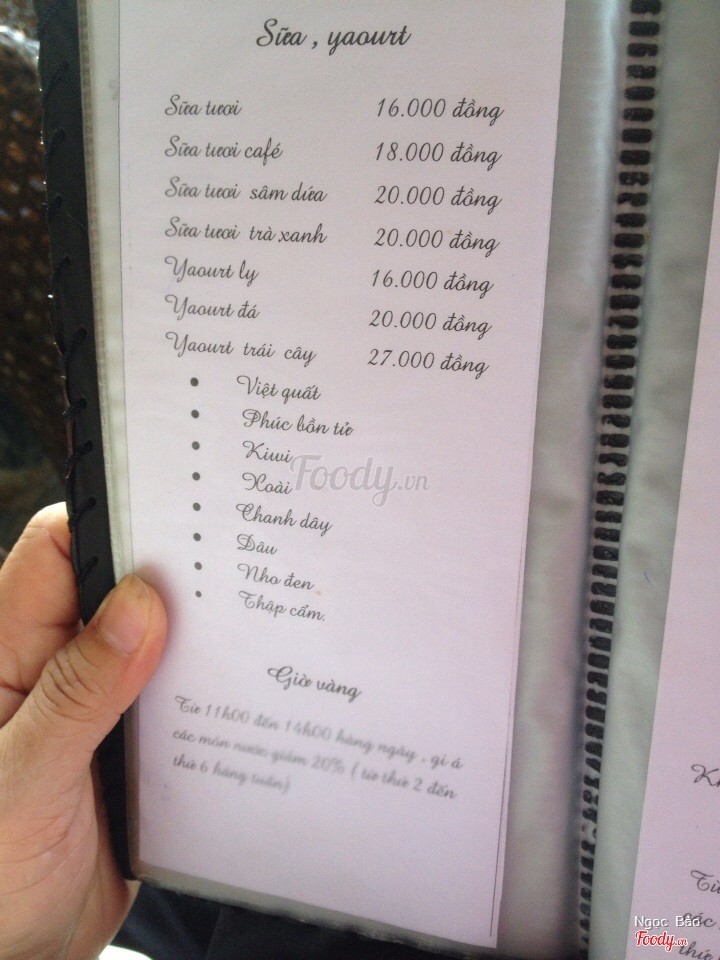 Sữa , yaourt
Sữa tươi 16.000 đồng
Sữa tươi café 18.000 đồng
Sữa tươi sâm dứa 20.000 đồng
Sữa tươi trà xanh 20.000 đồng
Yaourt ly 16.000 đồng
Yaourt đá 20.000 đồng
Yaourt trái cây 27.000 đồng
• Việt quất
• Phúc bồn tử
• Kiwi
• Xoài
• Chanh dây
• Dâu
• Nho đen
• Thập cẩm.
Foody.vn
Giờ vàng
Từ 11h00 đến 14h00 hàng ngày , gi á
các món nước giảm 20% ( từ thứ 2 đến
thứ 6 hàng tuần)
Từ
các
thứ
Ngọc Bảo
Foody.vn